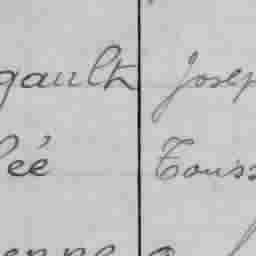 gault Josep
lée Touss
enne